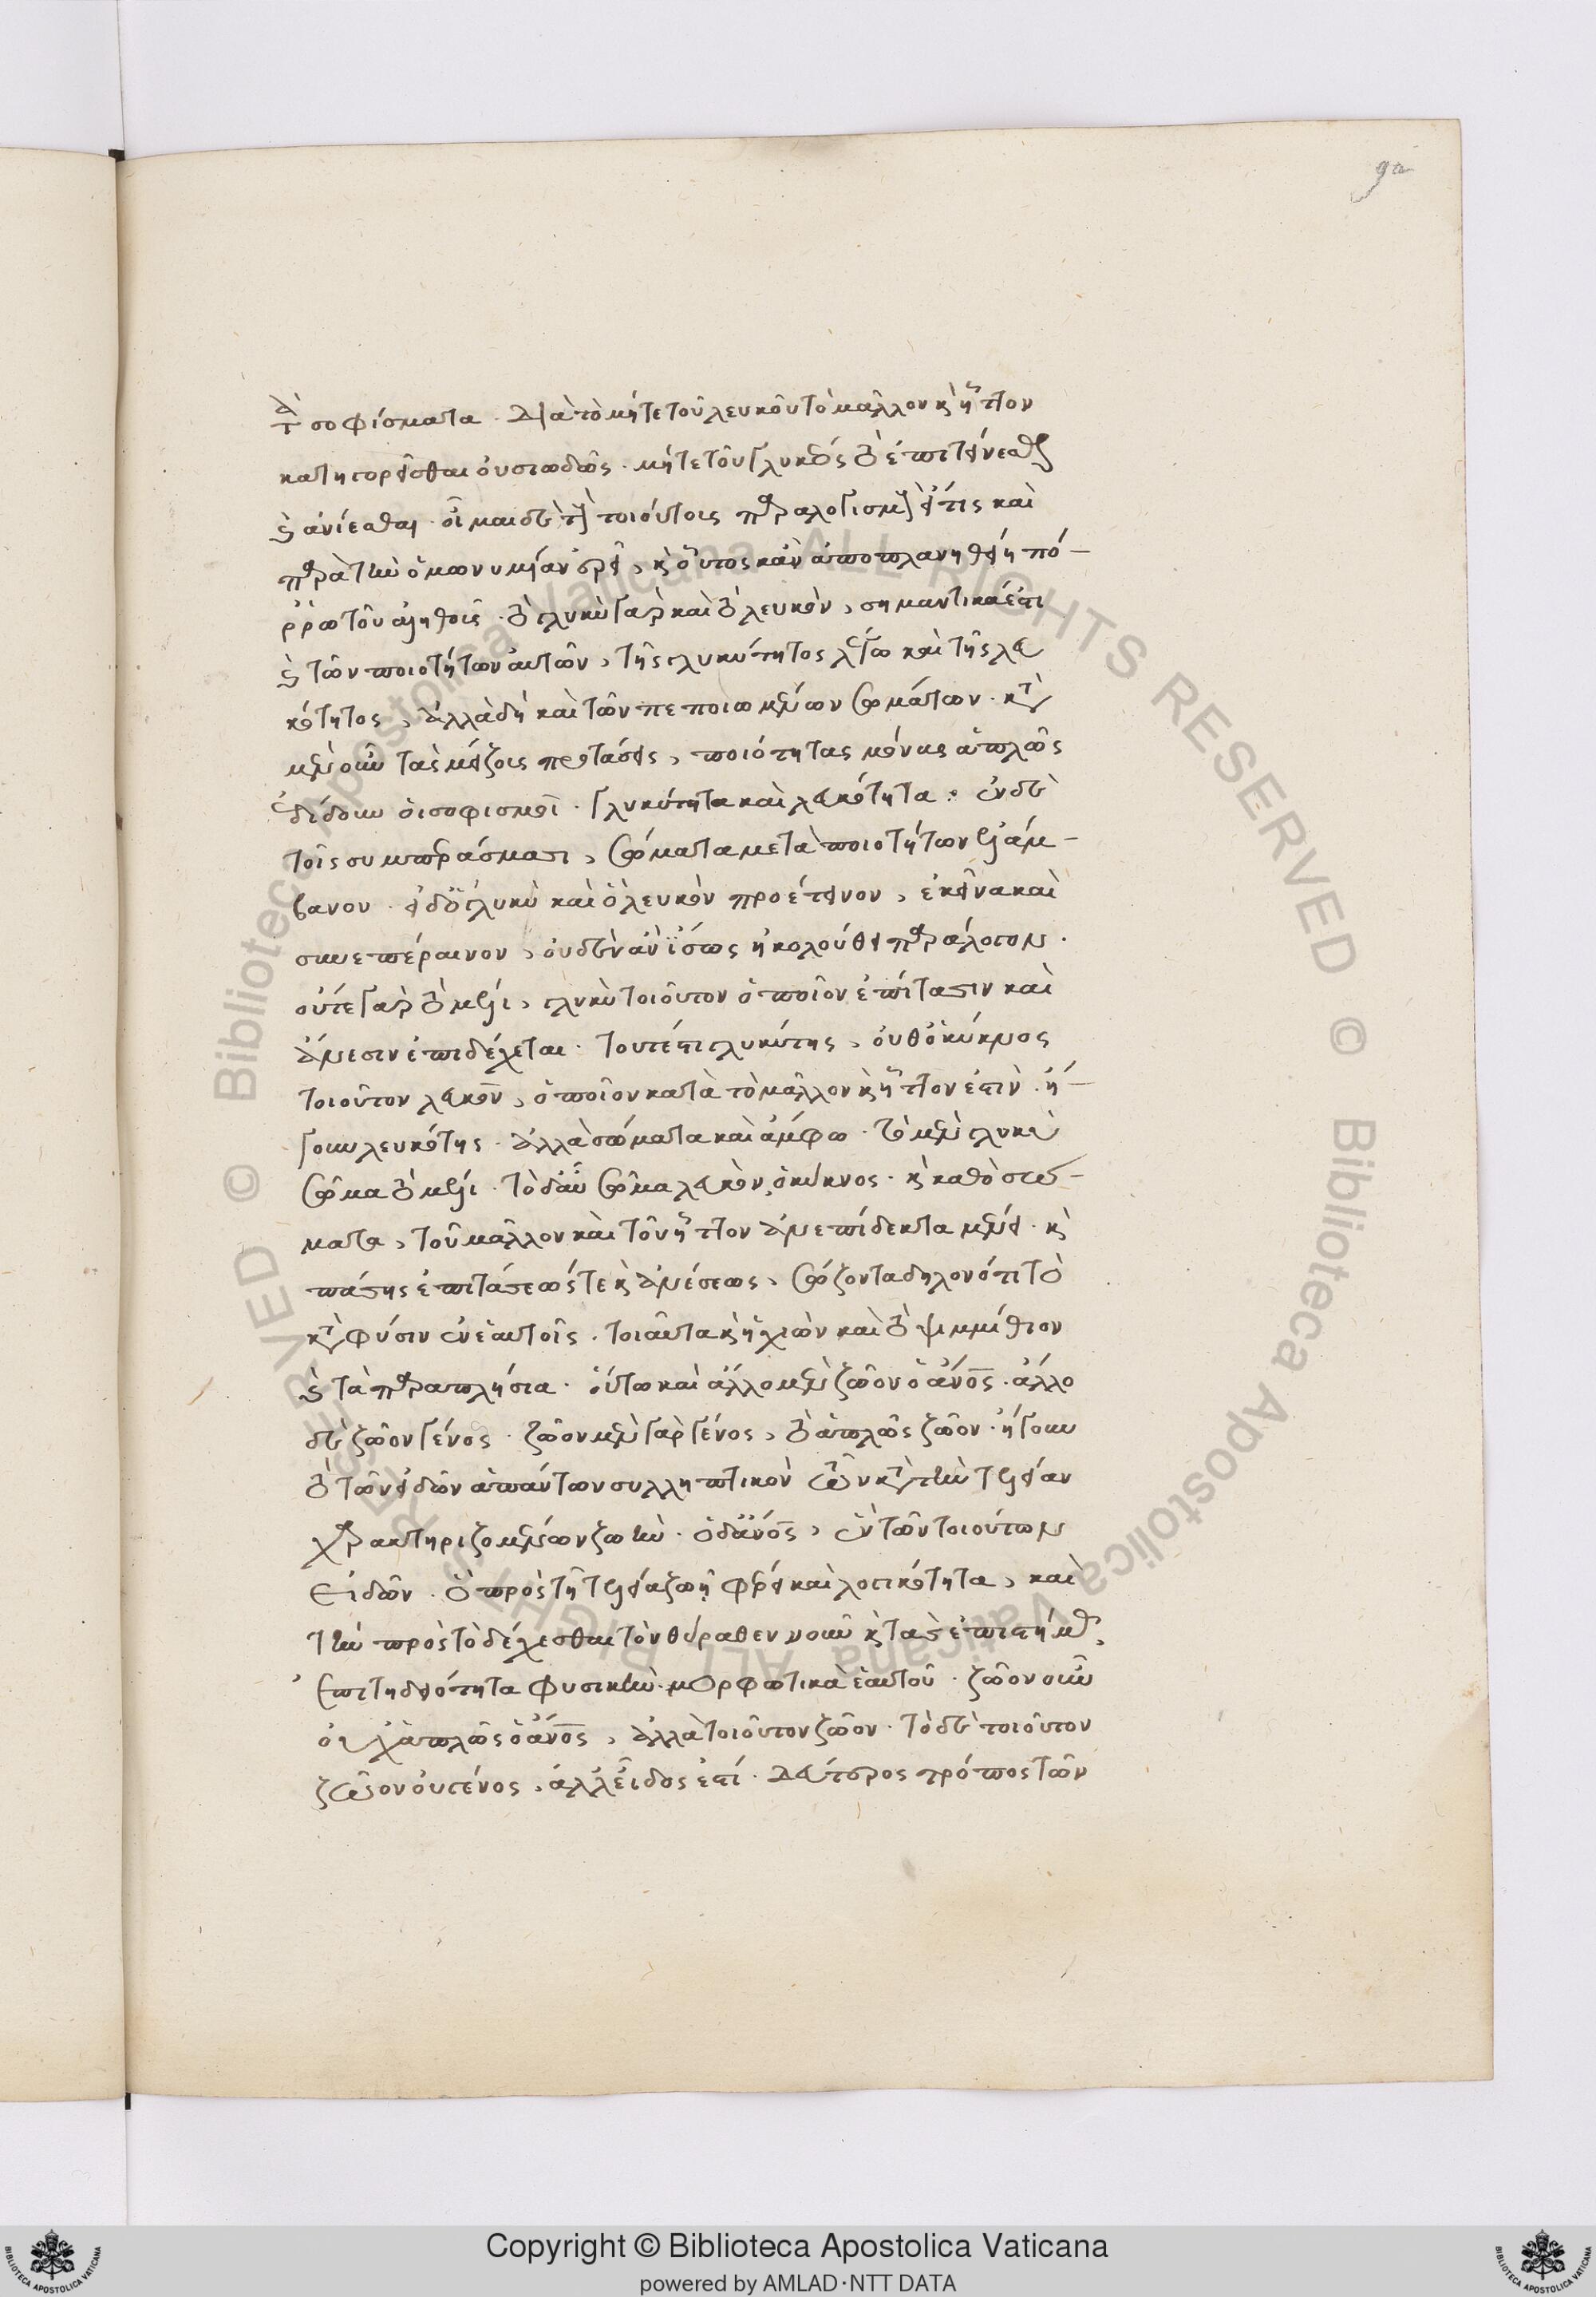 92
τὰ σοφίσματα. Διὰ τὸ μήτε τοῦ λευκοῦ τὸ μᾶλλον κ ἧττον
κατηγορεῖσθαι οὐσιωδῶς. μήτε τοῦ γλυκέος τὸ ἐπιτείνεσθαι
κ ἀνίεσθαι. οἶμαι δὲ τοῖς τοιούτοις παραλογισμοῖς εἴ τις καὶ
παρὰ τὴν ὁμωνυμίαν ἐρεῖ, κ οὗτος κἂν ἀποπλανηθείη πό-
ρρω τοῦ ἀληθοῦς. τὸ γλυκὺ γὰρ καὶ τὸ λευκὸν, σημαντικά ἐστι
κ τῶν ποιοτήτων αὐτῶν, τῆς γλυκύτητος λέγω καὶ τῆς λευ
κότητος, ἀλλὰ δὴ καὶ τῶν πεποιωμένων σωμάτων. κατὰ
μὲν οὖν τὰς μείζους προτάσεις, ποιότητας μόνας ἁπλῶς
ἐδίδουν οἱ σοφισμοί. γλυκύτητα καὶ λευκότητα: ἐν δὲ
τοῖς συμπεράσμασι, σώματα μετὰ ποιοτήτων ἐλάμ-
βανον. εἰ δ' ὃ γλυκὺ καὶ ὃ λευκὸν προέτεινον, ἐκεῖνα καὶ
συνεπέραινον, οὐδὲν ἂν ἴσως ἠκολούθει παράλογον.
οὔτε γὰρ τὸ μέλι, γλυκὺ τοιοῦτον ὁποῖον ἐπίτασιν καὶ
ἄνεσιν ἐπιδέχεται. τουτέστι γλυκύτης, οὔθ' ὁ κύκνος
τοιοῦτον λευκὸν, ὁποῖον κατὰ τὸ μᾶλλον κ ἧττον ἐστὶν. ἤ-
γουν λευκότης. ἀλλὰ σώματα καὶ ἄμφω. τὸ μὲν γλυκὺ
σῶμα τὸ μέλι. τὸ δ' αὖ σῶμα λευκὸν, ὁ κύκνος. κ καθὸ σώ-
ματα, τοῦ μᾶλλον καὶ τοῦ ἧττον ἀνεπίδεκτα μένει. κ
πάσης ἐπιτάσεώς τε κ ἀνέσεως, σώζοντα δηλονότι τὸ
κατὰ φύσιν ἐν ἑαυτοῖς. τοιαῦτα κ ἡ χιὼν καὶ τὸ ψιμμίθιον
κ τὰ παραπλήσια. οὕτω καὶ ἄλλο μὲν ζῶον ὁ ἄνος. ἄλλο
δὲ ζῶον γένος. ζῶον μὲν γὰρ γένος, τὸ ἁπλῶς ζῶον. ἤγουν
τὸ τῶν εἰδῶν ἁπάντων συλληπτικὸν τῶν κατὰ τὴν τελείαν
χαρακτηριζομένων ζωὴν. ὁ δ' ἄνος, ἓν τῶν τοιούτων
εἰδῶν. ὃ πρὸς τῇ τελείᾳ ζωῇ φέρει καὶ λογικότητα, καὶ
τὴν πρὸς τὸ δέχεσθαι τὸν θύραθεν νοῦν κ τὰς ἐπιστήμας
ἐπιτηδειότητα φυσικὴν. μορφωτικὰ ἑαυτοῦ. ζῶον οὖν
οὐχ ἁπλῶς ὁ ἄνος, ἀλλὰ τοιοῦτον ζῶον. τὸ δὲ τοιοῦτον
ζῶον οὐ γένος, ἀλλ' εἶδος ἐστί. Δεύτερος τρόπος τῶν
Copyright © Biblioteca Apostolica Vaticana
powered by AMLAD·NTT DATA